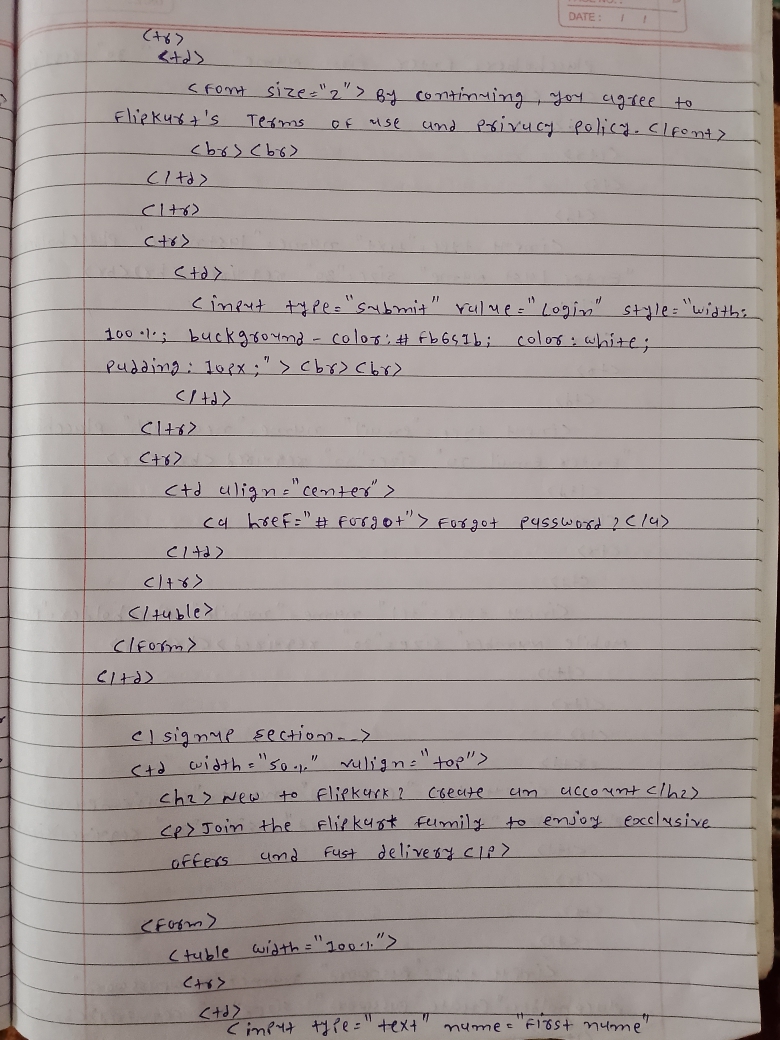 DATE: / /
<tr>
<td>
<font size="2"> By continuing, you agree to
Flipkart's Terms of use and privacy policy. </font>
<br><br>
</td>
</tr>
<tr>
<td>
<input type="submit" value="Login" style="width:
100%; background-color:# fb651b; color: white;
padding: 10px;"> <br><br>
</td>
</tr>
<tr>
<td align="center">
<a href="# Forgot"> Forgot password? </a>
</td>
</tr>
</table>
</form>
</td>
<! signup section-->
<td width="50%" valign="top">
<h2> New to Flipkart? Create an account </h2>
<p> Join the Flipkart family to enjoy exclusive
offers and fast delivery </p>
<form>
<table width="100%">
<tr>
<td>
<input type="text" name="First name"